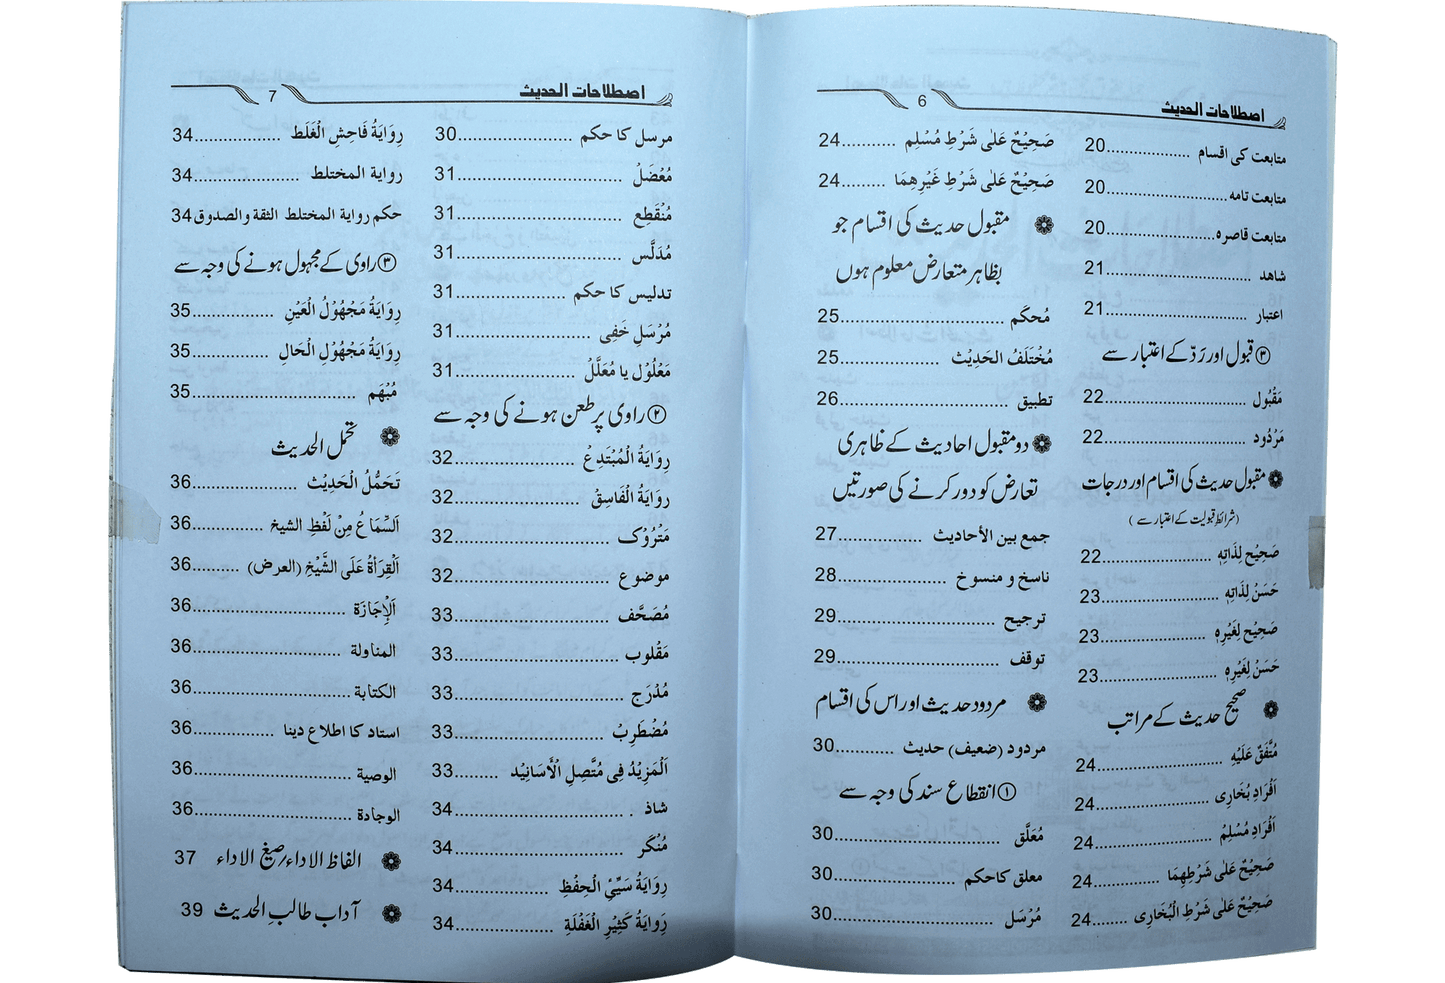 اصطلاحات الحدیث
6
متابعت کی اقسام ................... 20
متابعت تامہ ........................ 20
متابعت قاصرہ ..................... 20
شاهد ................................ 21
اعتبار ............................... 21
③ قبول اور رَدّ کے اعتبار سے
مَقْبُول .............................. 22
مَرْدُود .............................. 22
مقبول حدیث کی اقسام اور درجات
(شرائط قبولیت کے اعتبار سے)
صَحِيْح لِذَاتِهٖ ........................ 22
حَسَنُ لِذَاتِهٖ ........................ 23
صَحِيْح لِغَيْرِهٖ ........................ 23
حَسَنُ لِغَيْرِهٖ ........................ 23
صحیح حدیث کے مراتب
مُتَّفَقٌ عَلَيْهِ ........................ 24
اَفْرَادِ بُخَارِی ........................ 24
اَفْرَادِ مُسْلِمُ ........................ 24
صَحِيْحٌ عَلٰى شَرْطِهِمَا ............. 24
صَحِيْحٌ عَلٰى شَرْطِ الْبُخَارِی ....... 24
صَحِيْحٌ عَلٰى شَرْطِ مُسْلِم .......... 24
صَحِيْحٌ عَلٰى شَرْطِ غَيْرِهِمَا ......... 24
مقبول حدیث کی اقسام جو
بظاہر متعارض معلوم ہوں
مُحكَم ................................ 25
مُخْتَلَفُ الحَدِيْث .................... 25
تطبیق ................................ 26
دو مقبول احادیث کے ظاہری
تعارض کو دور کرنے کی صورتیں
جمع بین الأحادیث ................ 27
ناسخ و منسوخ ..................... 28
ترجیح ............................... 29
توقف ................................ 29
مردود حدیث اور اس کی اقسام
مردود (ضعیف) حدیث ............ 30
① انقطاع سند کی وجہ سے
مُعَلَّق ................................ 30
معلق کاحکم ......................... 30
مُرْسَل ................................ 30
اصطلاحات الحدیث
7
مرسل کا حکم ....................... 30
مُعْضَلُ .............................. 31
مُنْقَطِع .............................. 31
مُدَلَّس ............................... 31
تدلیس کا حکم ...................... 31
مُرْسَلِ خَفِی ........................ 31
مَعْلُوْل یا مُعَلَّلُ ..................... 31
② راوی پر طعن ہونے کی وجہ سے
رِوَايَةُ الْمُبْتَدِعْ ....................... 32
رِوَايَةُ الْفَاسِقُ ....................... 32
مَتْرُوْک .............................. 32
موضوع .............................. 32
مُصَحَّف .............................. 33
مَقْلُوب ............................... 33
مُدْرَج ................................ 33
مُضْطَرِبُ ............................ 33
اَلْمَزِيْدُ فِی مُتَّصِلِ الْأَسَانِيْد ........ 33
شاذ ................................... 34
مُنْكَر ................................ 34
رِوَايَةُ سَيِّئِ الْحِفْظِ ................ 34
رِوَايَةُ كَثِيْرِ الْغَفْلَةِ .................. 34
رِوَايَةُ فَاحِشِ الْغَلَط ............... 34
رواية المختلط ..................... 34
حکم رواية المختلط الثقة والصدوق 34
③ راوی کے مجہول ہونے کی وجہ سے
رِوَايَةُ مَجْهُوْلُ الْعَيْنِ ................ 35
رِوَايَةُ مَجْهُوْلِ الْحَالِ ................ 35
مُبْهَم ................................ 35
تحمل الحدیث
تَحَمُّلُ الْحَدِيْث .................... 36
اَلسِّمَاعُ مِنْ لَفْظِ الشيخ ............ 36
اَلْقِرَأةُ عَلَى الشَّيْخِ (العرض) ......... 36
اَلْإِجَازَة ............................. 36
المناولة .............................. 36
الكتابة ............................... 36
استاد کا اطلاع دینا ................ 36
الوصية ............................... 36
الوجادة .............................. 36
الفاظ الاداء/صیغ الاداء 37
آداب طالب الحدیث 39